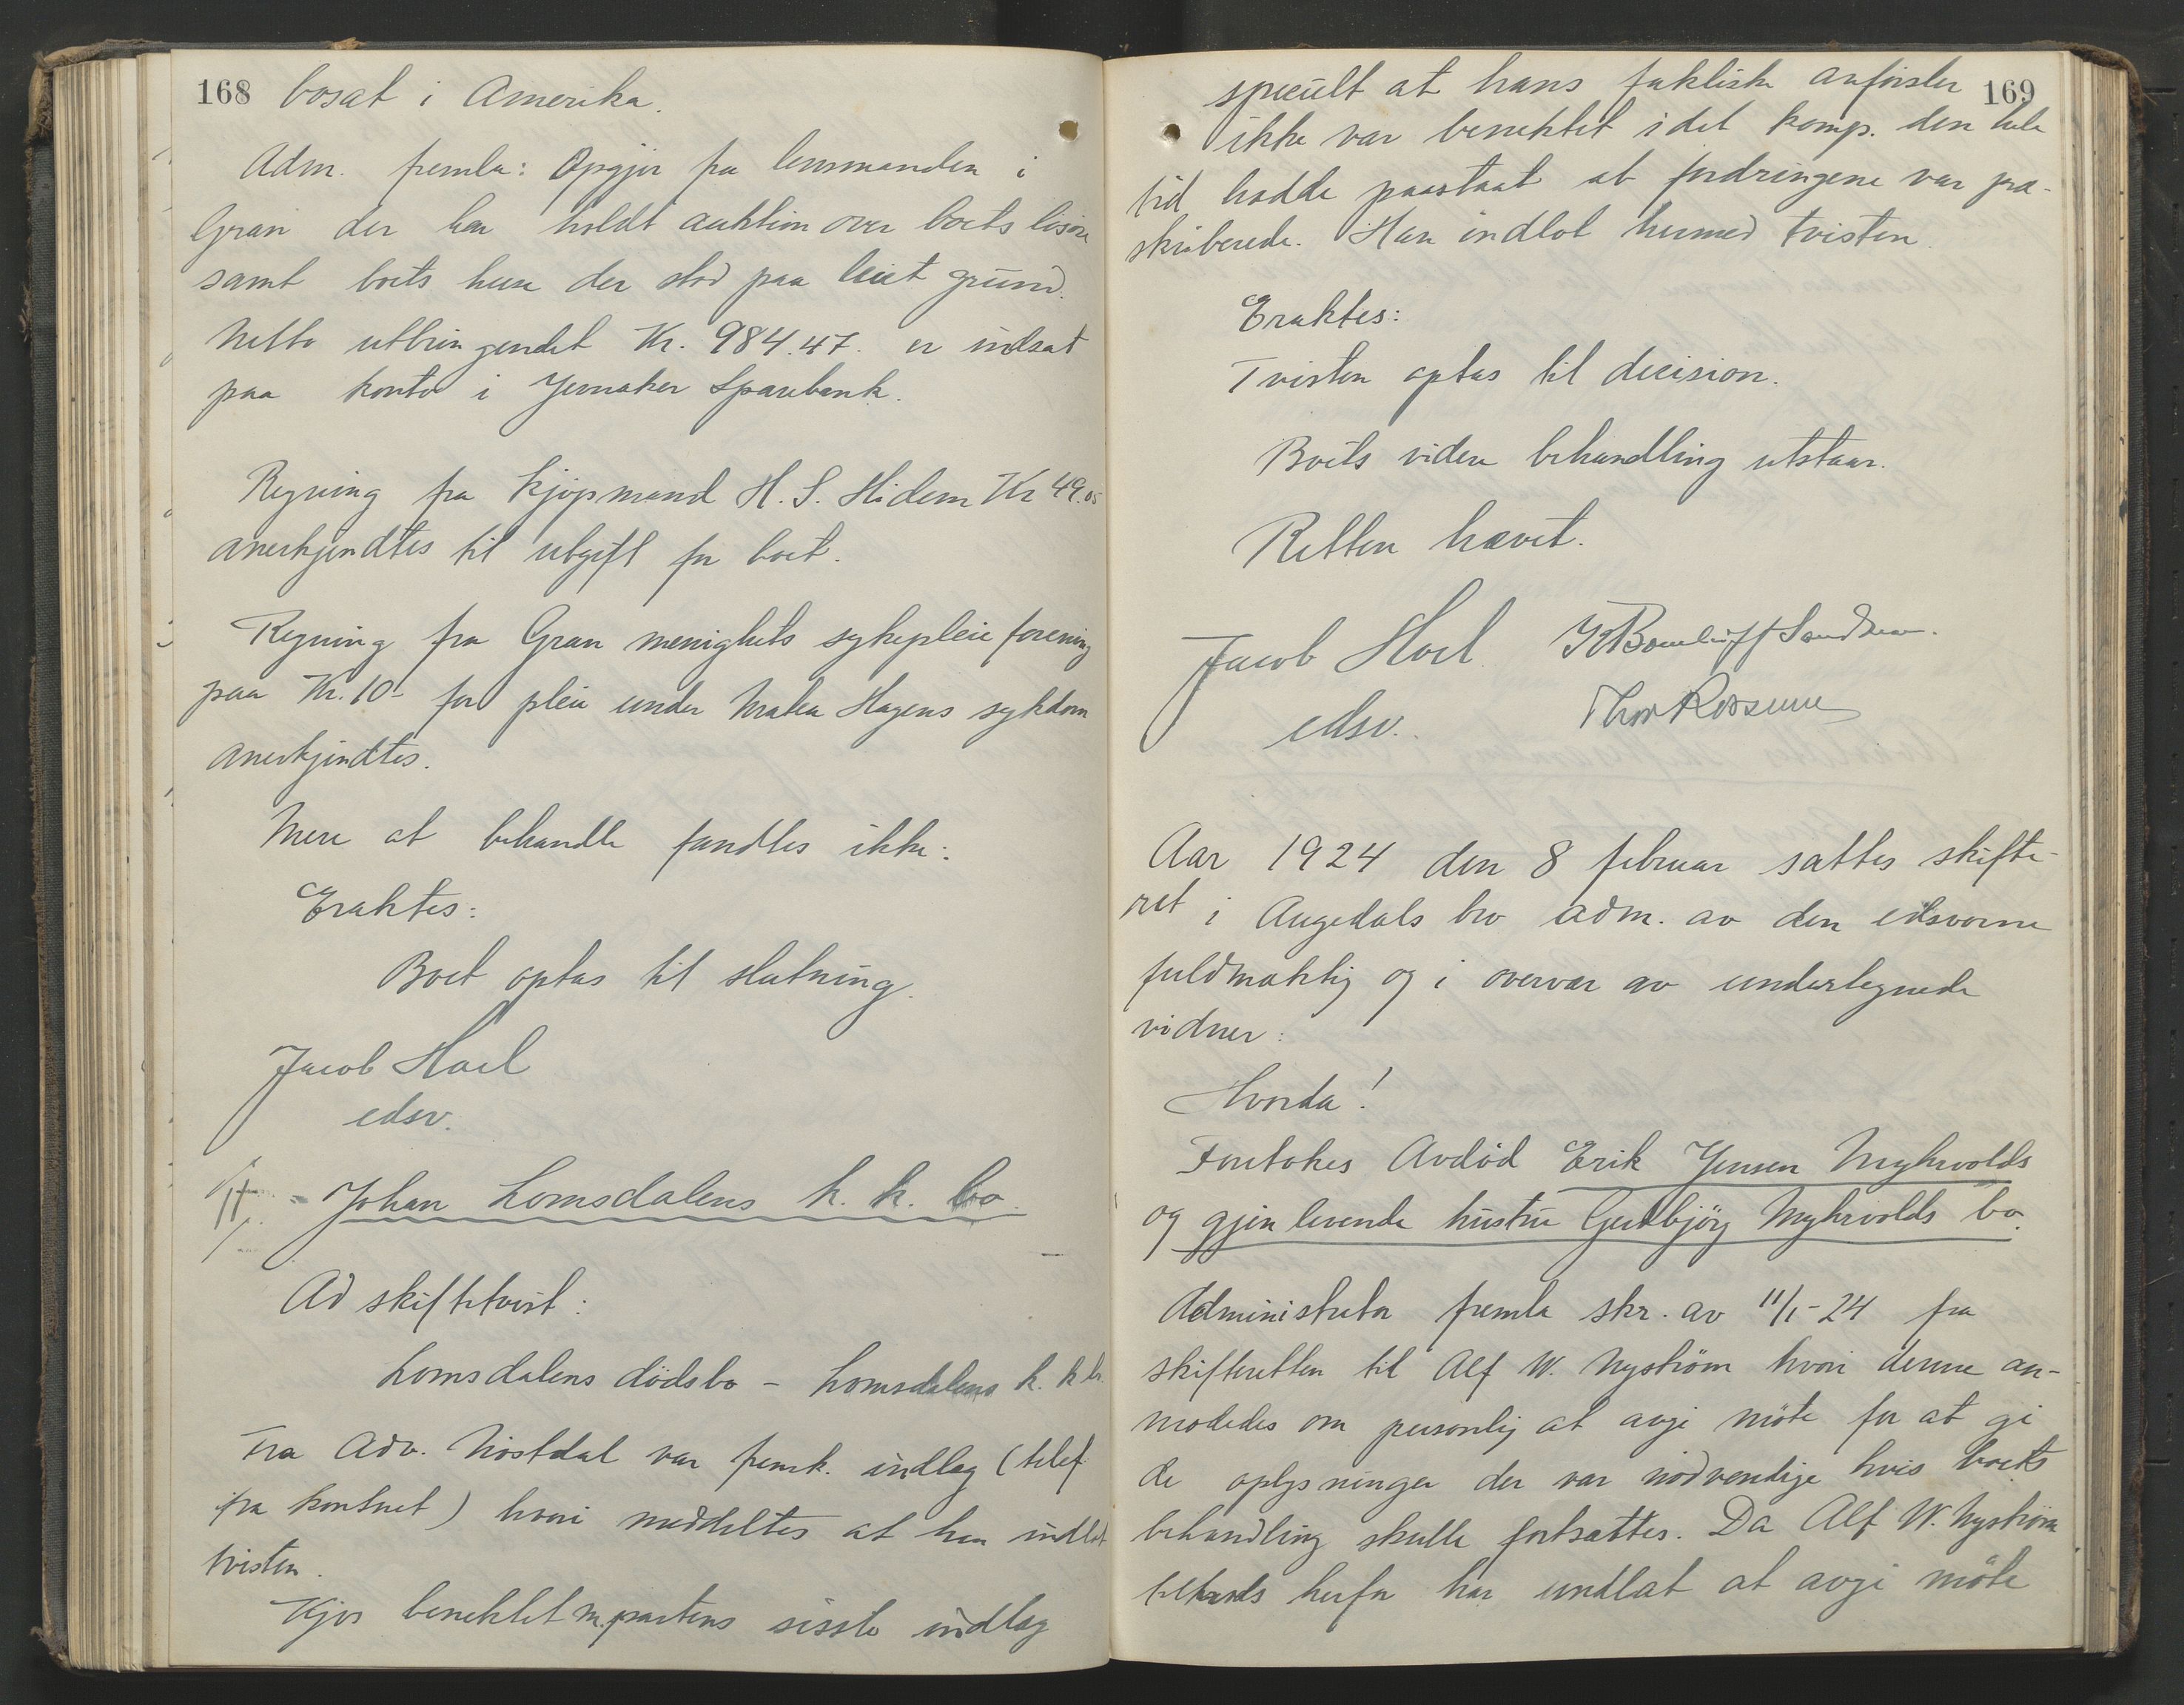 168
bosat i Amerika.
Adm. fremla: Opgjør fra lensmanden i
Gran der har holdt auktion over boets løsøre
samt boets huse der stod paa leiet grund.
Netto utbringendet Kr. 984.47. er indsat
paa konto i Jevnaker Sparebank.
Regning fra kjøpmand H. S. Hidem Kr 49.05
anerkjendtes til utgift for boet.
Regning fra Gran menighets sykepleieforening
paa Kr. 10- for pleie under Hagens sykdom
anerkjendtes.
Mere at behandle fandtes ikke:
Eragtes:
Boet optas til slutning.
Jacob Hoel
edsv.
Johan Lomsdalens k. k. bo.
Ad skiftetvist:
Lomsdalens dödsbo - Lomsdalens k. k bo.
Fra Adv. Nøstdal var fremk. indlæg (telef
fra kontoret) hvori meddeltes at han indlot
tvisten.
Kjos benektet m.partens sisste indlæg
169
specielt at hans faktiske anførsler
ikke var benektet idet komp. den hele
tid hadde paastaat at fordringene var præ-
skriberede. Han indlot hermed tvisten.
Eragtes:
Tvisten optas til decision.
Boets videre behandling utstaar.
Retten hævet.
Jacob Hoel
edsv.
Thor Rossum
Aar 1924 den 8 februar sattes skifte-
ret i Augedals bro adm. av den edsvorne
fuldmæktig og i overvær av undertegnede
vidner:
Hvorda!
Foretokes Avdød Erik Jensen Myhrvolds
og gjenlevende hustru Gudbjörg Myhrvolds bo.
Administrator fremla skr. av 11/1-24 fra
skifteretten til Alf W. Nyström hvori denne an-
modedes om personlig at avgi möte for at gi
de oplysninger der var nödvendige hvis boets
behandling skulle fortsættes. Da Alf W. Nyström
herfor har undlat at avgi möte